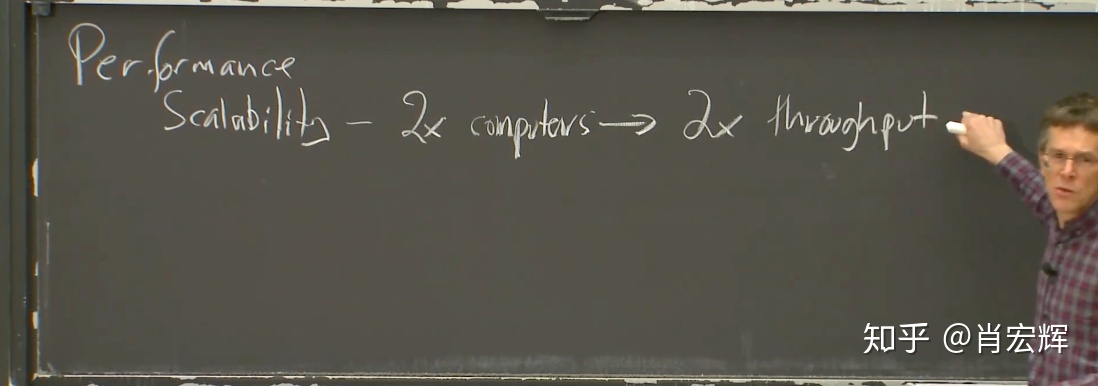 Performance
Scalability - 2x computers → 2x throughput
知乎 @肖宏辉